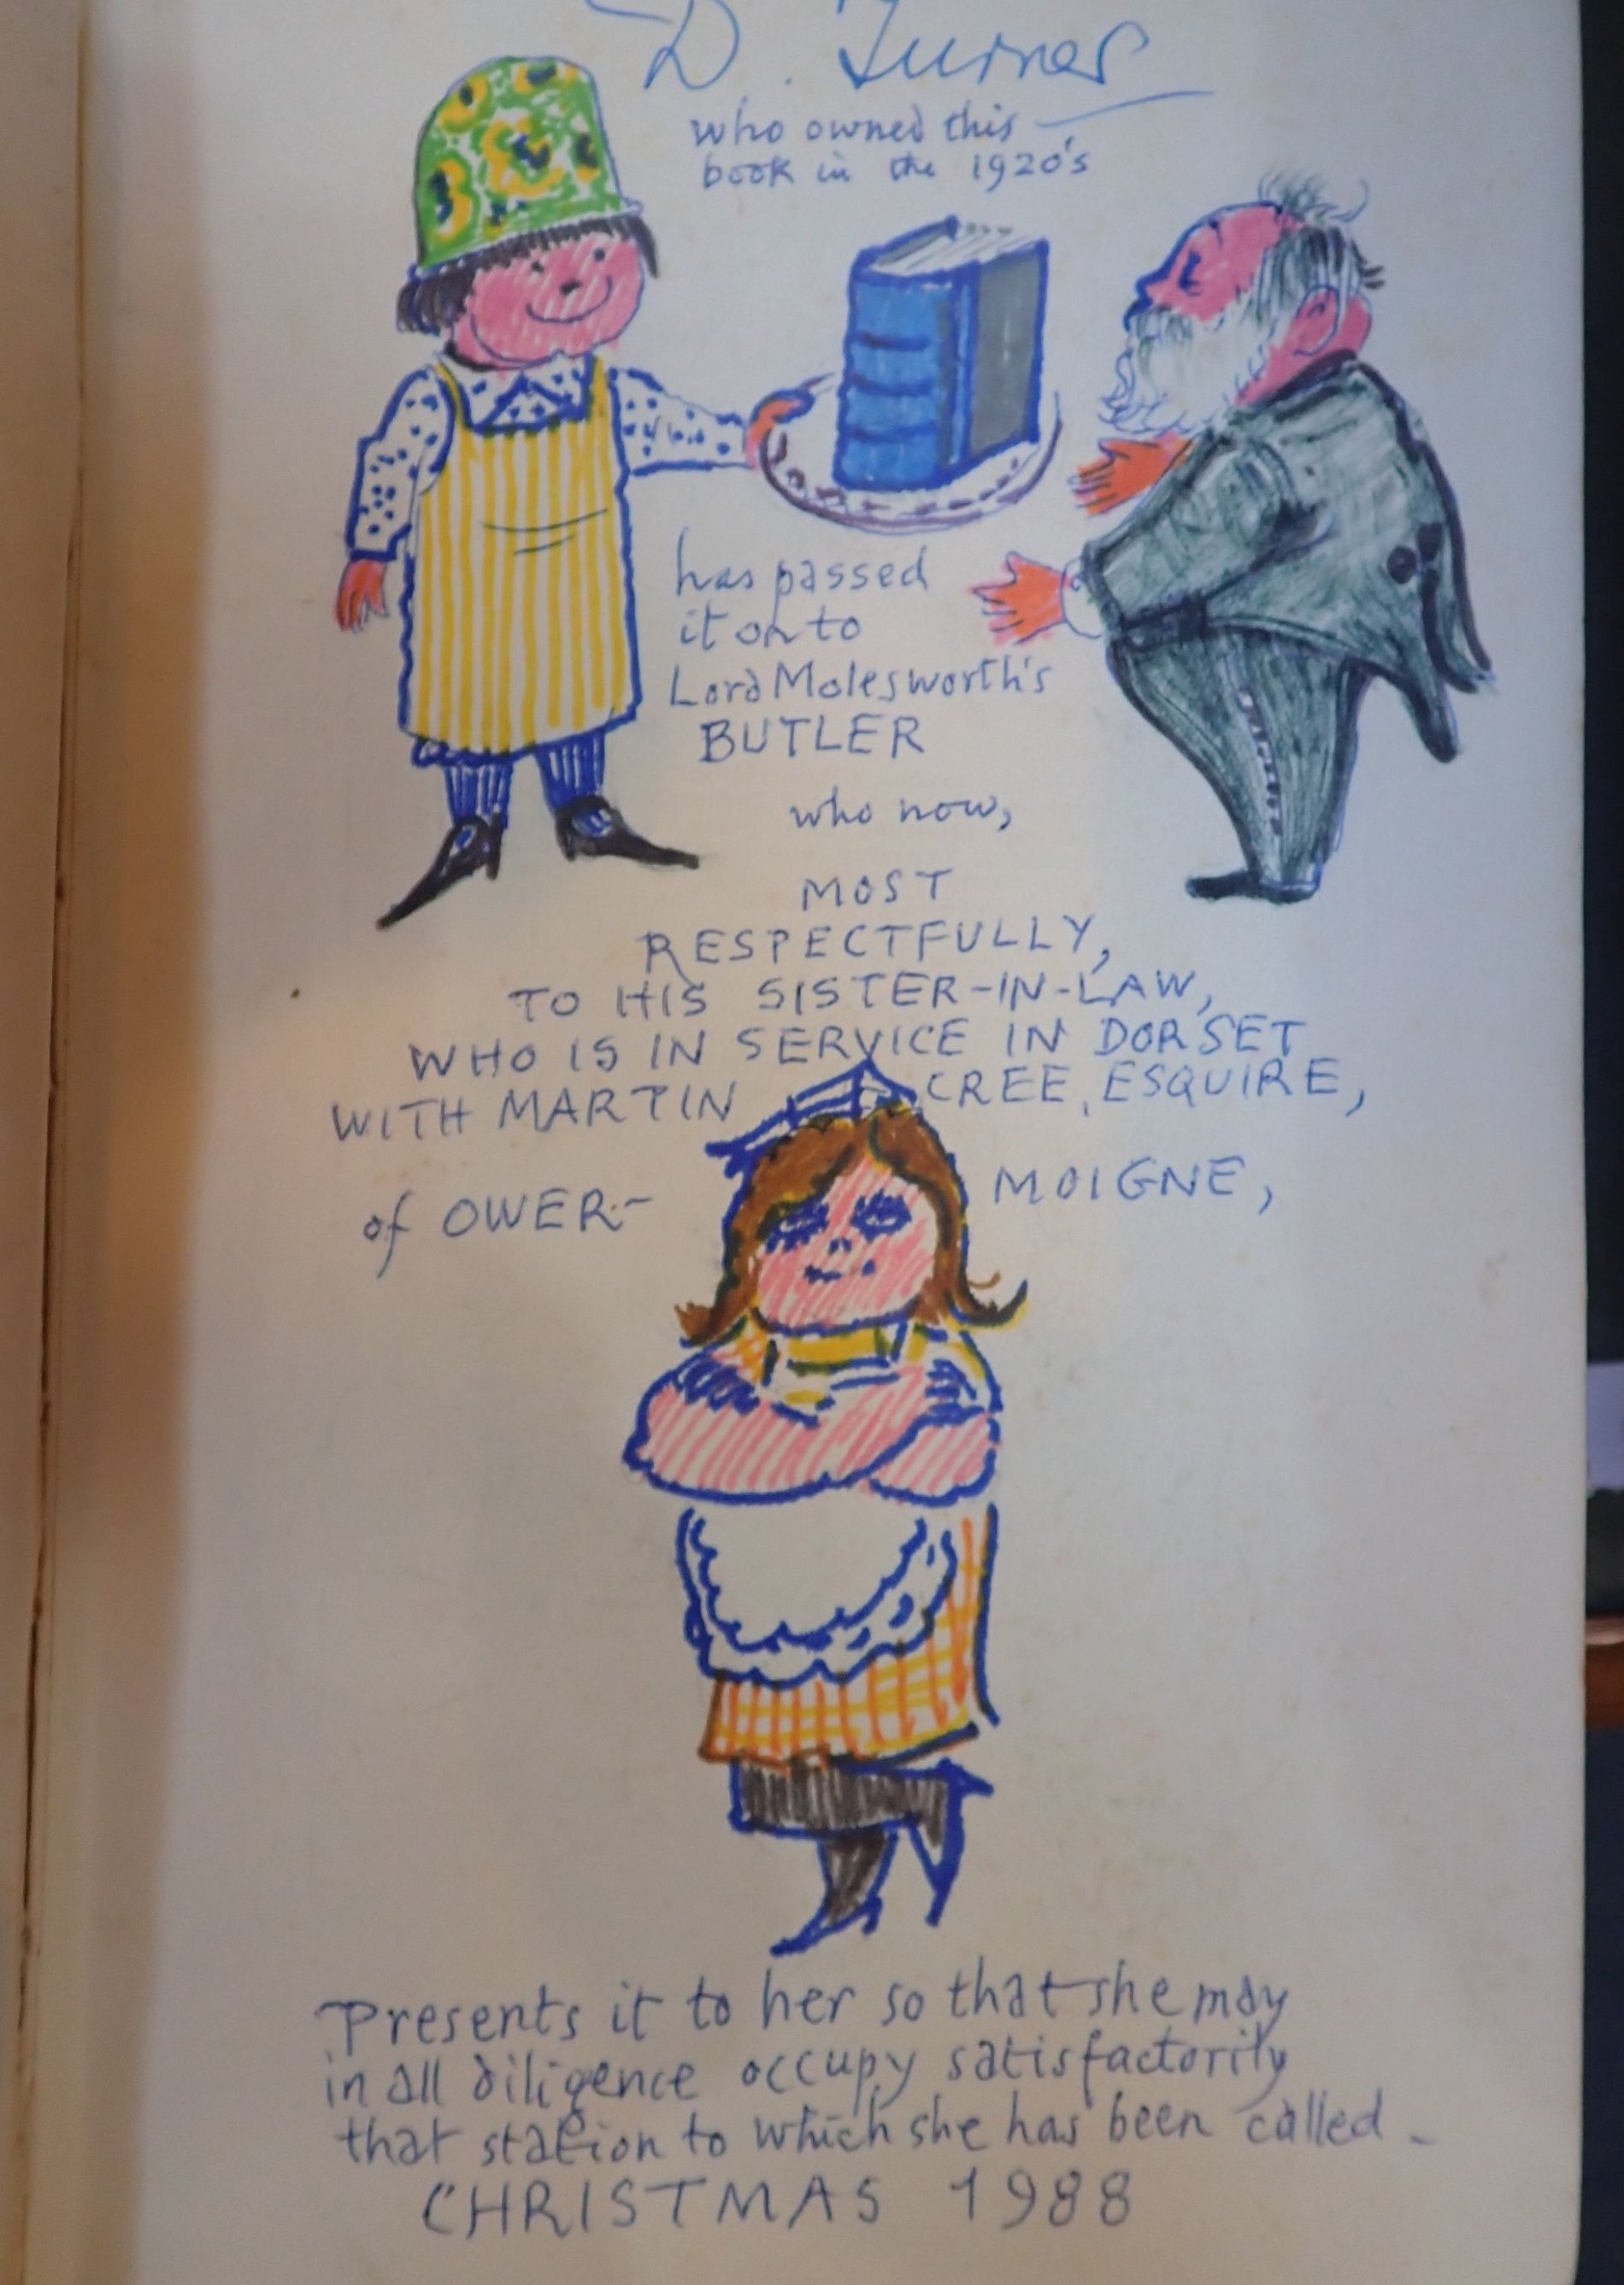 D. Turner
who owned this
book in the 1920's
has passed
it on to
Lord Molesworth's
BUTLER
who now,
MOST
RESPECTFULLY,
TO HIS SISTER-IN-LAW,
WHO IS IN SERVICE IN DORSET
WITH MARTIN CREE, ESQUIRE,
of OWER- MOIGNE,
Presents it to her so that she may
in all diligence occupy satisfactorily
that station to which she has been called -
CHRISTMAS 1988